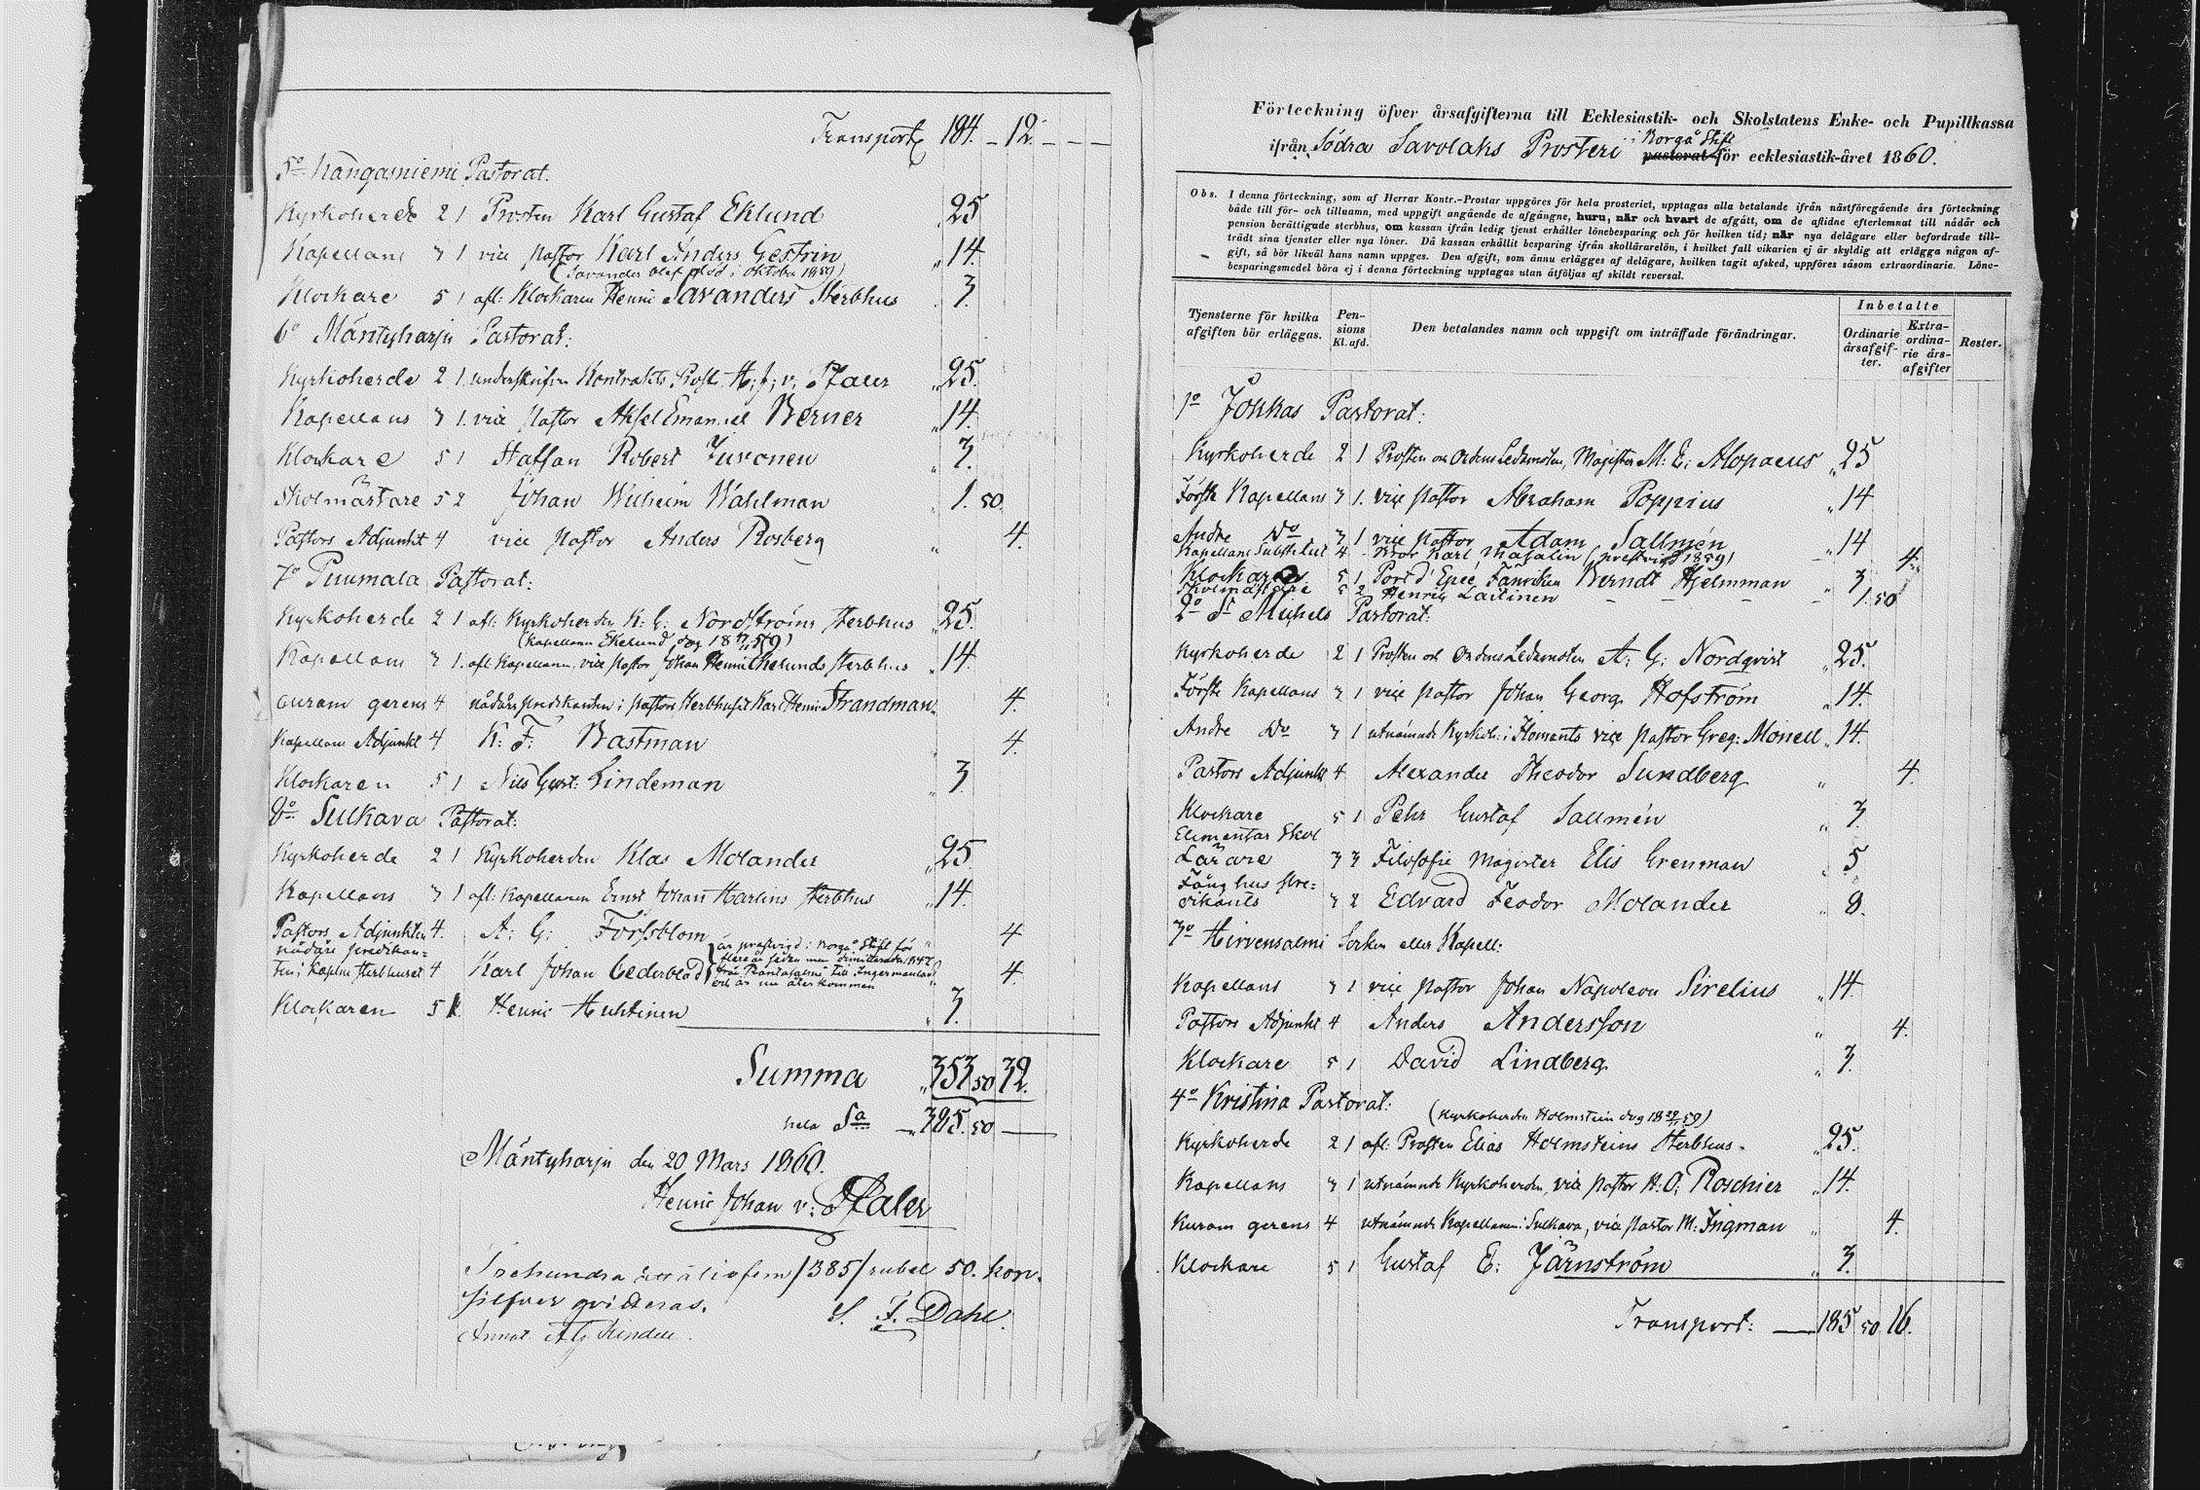 Transport 184. – 12. – – –
5o Kangasniemi Pastorat.
Kyrkoherde 2 1 Prosten Karl Gustaf Eklund 25
Kapellans 3 1 vice pastor Karl Anders Gestrin „ 14.
(Savander blef död i oktober 1859)
Klockare 5 1 afl: Klockaren Henric Savanders Sterbhus 3.
6o Mäntyharju Pastorat:
Kyrkoherde 2 1. underskrifven Kontrakts Prost. H: J: v: Pfaler „ 25.
Kapellans 3 1. vice pastor Aksel Emanuel Berner „ 14.
Klockare 5 1 Staffan Robert Juvonen „ 3.
Skolmästare 5 2 Johan Wilhelm Wahlman „ 1. 50.
Pastors Adjunkt 4 vice pastor Anders Rosberg „ 4.
7o Puumala Pastorat:
Kyrkoherde 2 1 afl: Kyrkoherden K: G: Nordströms sterbhus 25.
(Kapellanen Ekelund dog 18 59)
Kapellans 3 1. afl. Kapellanen, vice pastor Johan Henric Ekelunds sterbhus „ 14.
curam gerens 4 nådårspredikanten i pastors sterbhuset Karl Henric Strandman „ 4.
Kapellans Adjunkt 4 K: F: Bastman „ 4.
Klockaren 5 1 Nils Gust: Lindeman „ 3
8o Sulkava Pastorat:
Kyrkoherde 2 1 Kyrkoherden Klas Molander „ 25
Kapellans 3 1 afl: Kapellanen Ernst Johan Harlins sterbhus „ 14.
Pastors Adjunkten 4. A: G: Forssblom „ 4
nådårs predikan-
ten i Kaplns sterbhuset 4 Karl Johan Cederblad „ 4.
är prestvigd i Borgå Stift för
flere år sedan men dimitterades 1847
från Rantasalmi till Ingermanland
och är nu återkommen
Klockaren 5 1. Henric Huhtinen „ 3.
Summa „ 353 50 32.
hela Sa — „ 385. 50 —
Mäntyharju den 20 Mars 1860.
Henric Johan v: Pfaler
Trehundra åttatiofem /385/ rubel 50. kop.
silfver qvitteras.
S. T. Dahl.
Förteckning öfver årsafgifterna till Ecklesiastik- och Skolstatens Enke- och Pupillkassa
ifrån Södra Savolaks Prosteri i Borgå Stift pastorat för ecklesiastik-året 1860.
Obs. I denna förteckning, som af Herrar Kontr.-Prostar uppgöres för hela prosteriet, upptagas alla betalande ifrån nästföregående års förteckning
både till för- och tillnamn, med uppgift angående de afgångne, huru, när och hvart de afgått, om de aflidne efterlemnat till nådår och
pension berättigade sterbhus, om kassan ifrån ledig tjenst erhåller lönebesparing och för hvilken tid; när nya delägare eller befordrade till-
trädt sina tjenster eller nya löner. Då kassan erhållit besparing ifrån skollärarelön, i hvilket fall vikarien ej är skyldig att erlägga någon af-
gift, så bör likväl hans namn uppges. Den afgift, som ännu erlägges af delägare, hvilken tagit afsked, uppföres såsom extraordinarie. Löne-
besparingsmedel böra ej i denna förteckning upptagas utan åtföljas af skildt reversal.
Tjensterne för hvilka afgiften bör erläggas.
Pen-sions Kl. afd.
Den betalandes namn och uppgift om inträffade förändringar.
Inbetalte
Ordinarie årsafgif-ter.
Extra-ordina-rie års-afgifter
Rester.
1o Jokkas Pastorat:
Kyrkoherde 2 1 Prosten och Ordens Ledamoten, Magister M: E: Alopaeus „ 25
Förste Kapellans 3 1. vice pastor Abraham Poppius „ 14
Andre Do 3 1 vice pastor Adam Sallmén „ 14
Kapellans Substitut 4 – Karl Masalin (prestvigd 1859) 4.
Klockarens 5 1 Port d'Epeé Fänriken Berndt Hjelmman „ 3
Skolmästare 5 2 Henric Laitinen – – – – 1. 50
2o St Michels Pastorat:
Kyrkoherde 2 1 Prosten och Ordens Ledamoten A: G: Nordqvist „ 25.
Förste Kapellans 3 1 vice pastor Johan Georg Hofström „ 14.
Andre Do 3 1 utnämnde Kyrkoh: i Ilomants vice pastor Greg: Monell „ 14.
Pastors Adjunkt 4 Alexander Theodor Sundberg „ 4.
Klockare 5 1 Pehr Gustaf Sallmén „ 3.
Elementar Skol
Lärare 3 3 Filosofie Magister Elis Grenman „ 5
Fånghus pre-
dikants 3 2 Edvard Feodor Molander „ 8.
3o Hirvensalmi Socken eller Kapell:
Kapellans 3 1 vice pastor Johan Napoleon Sirelius „ 14.
Pastors Adjunkt 4 Anders Andersson „ 4.
Klockare 5 1 David Lindberg „ 3.
4o Kristina Pastorat:
(Kyrkoherden Holmstein dog 18 59)
Kyrkoherde 2 1 afl: Prosten Elias Holmsteins Sterbhus. „ 25.
Kapellans 3 1 utnämnde Kyrkoherden, vice pastor H: O: Roschier „ 14.
Kuram gerens 4 utnämnde Kapellanen i Sulkava, vice pastor M: Ingman „ 4.
Klockare 5 1 Gustaf E: Järnström „ 3.
Transport: — 185 50 16.